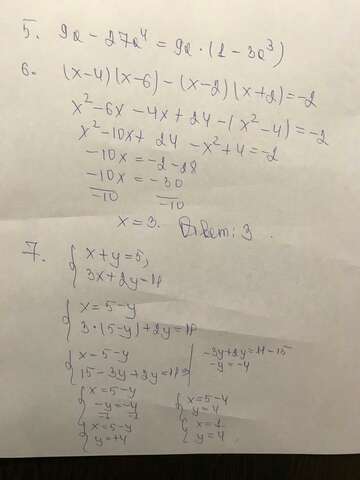 5. 9a - 27a⁴ = 9a · (1 - 3a³)
6. (x-4)(x-6) - (x-2)(x+2) = -2
x² - 6x - 4x + 24 - (x² - 4) = -2
x² - 10x + 24 - x² + 4 = -2
-10x = -2 - 28
-10x = -30
-10 -10
x = 3. Ответ: 3.
7. { x + y = 5,
3x + 2y = 11
{ x = 5 - y
3·(5-y) + 2y = 11
{ x = 5 - y
15 - 3y + 2y = 11 ⇒ | -3y + 2y = 11 - 15
-y = -4
{ x = 5 - y { x = 5 - 4
-y = -4 y = 4
-1 -1
{ x = 5 - y { x = 1
y = +4 y = 4